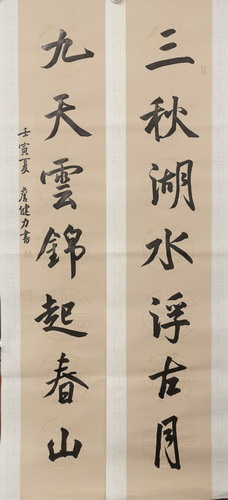 三秋湖水浮古月
九天雲錦起春山
壬寅夏 健力書